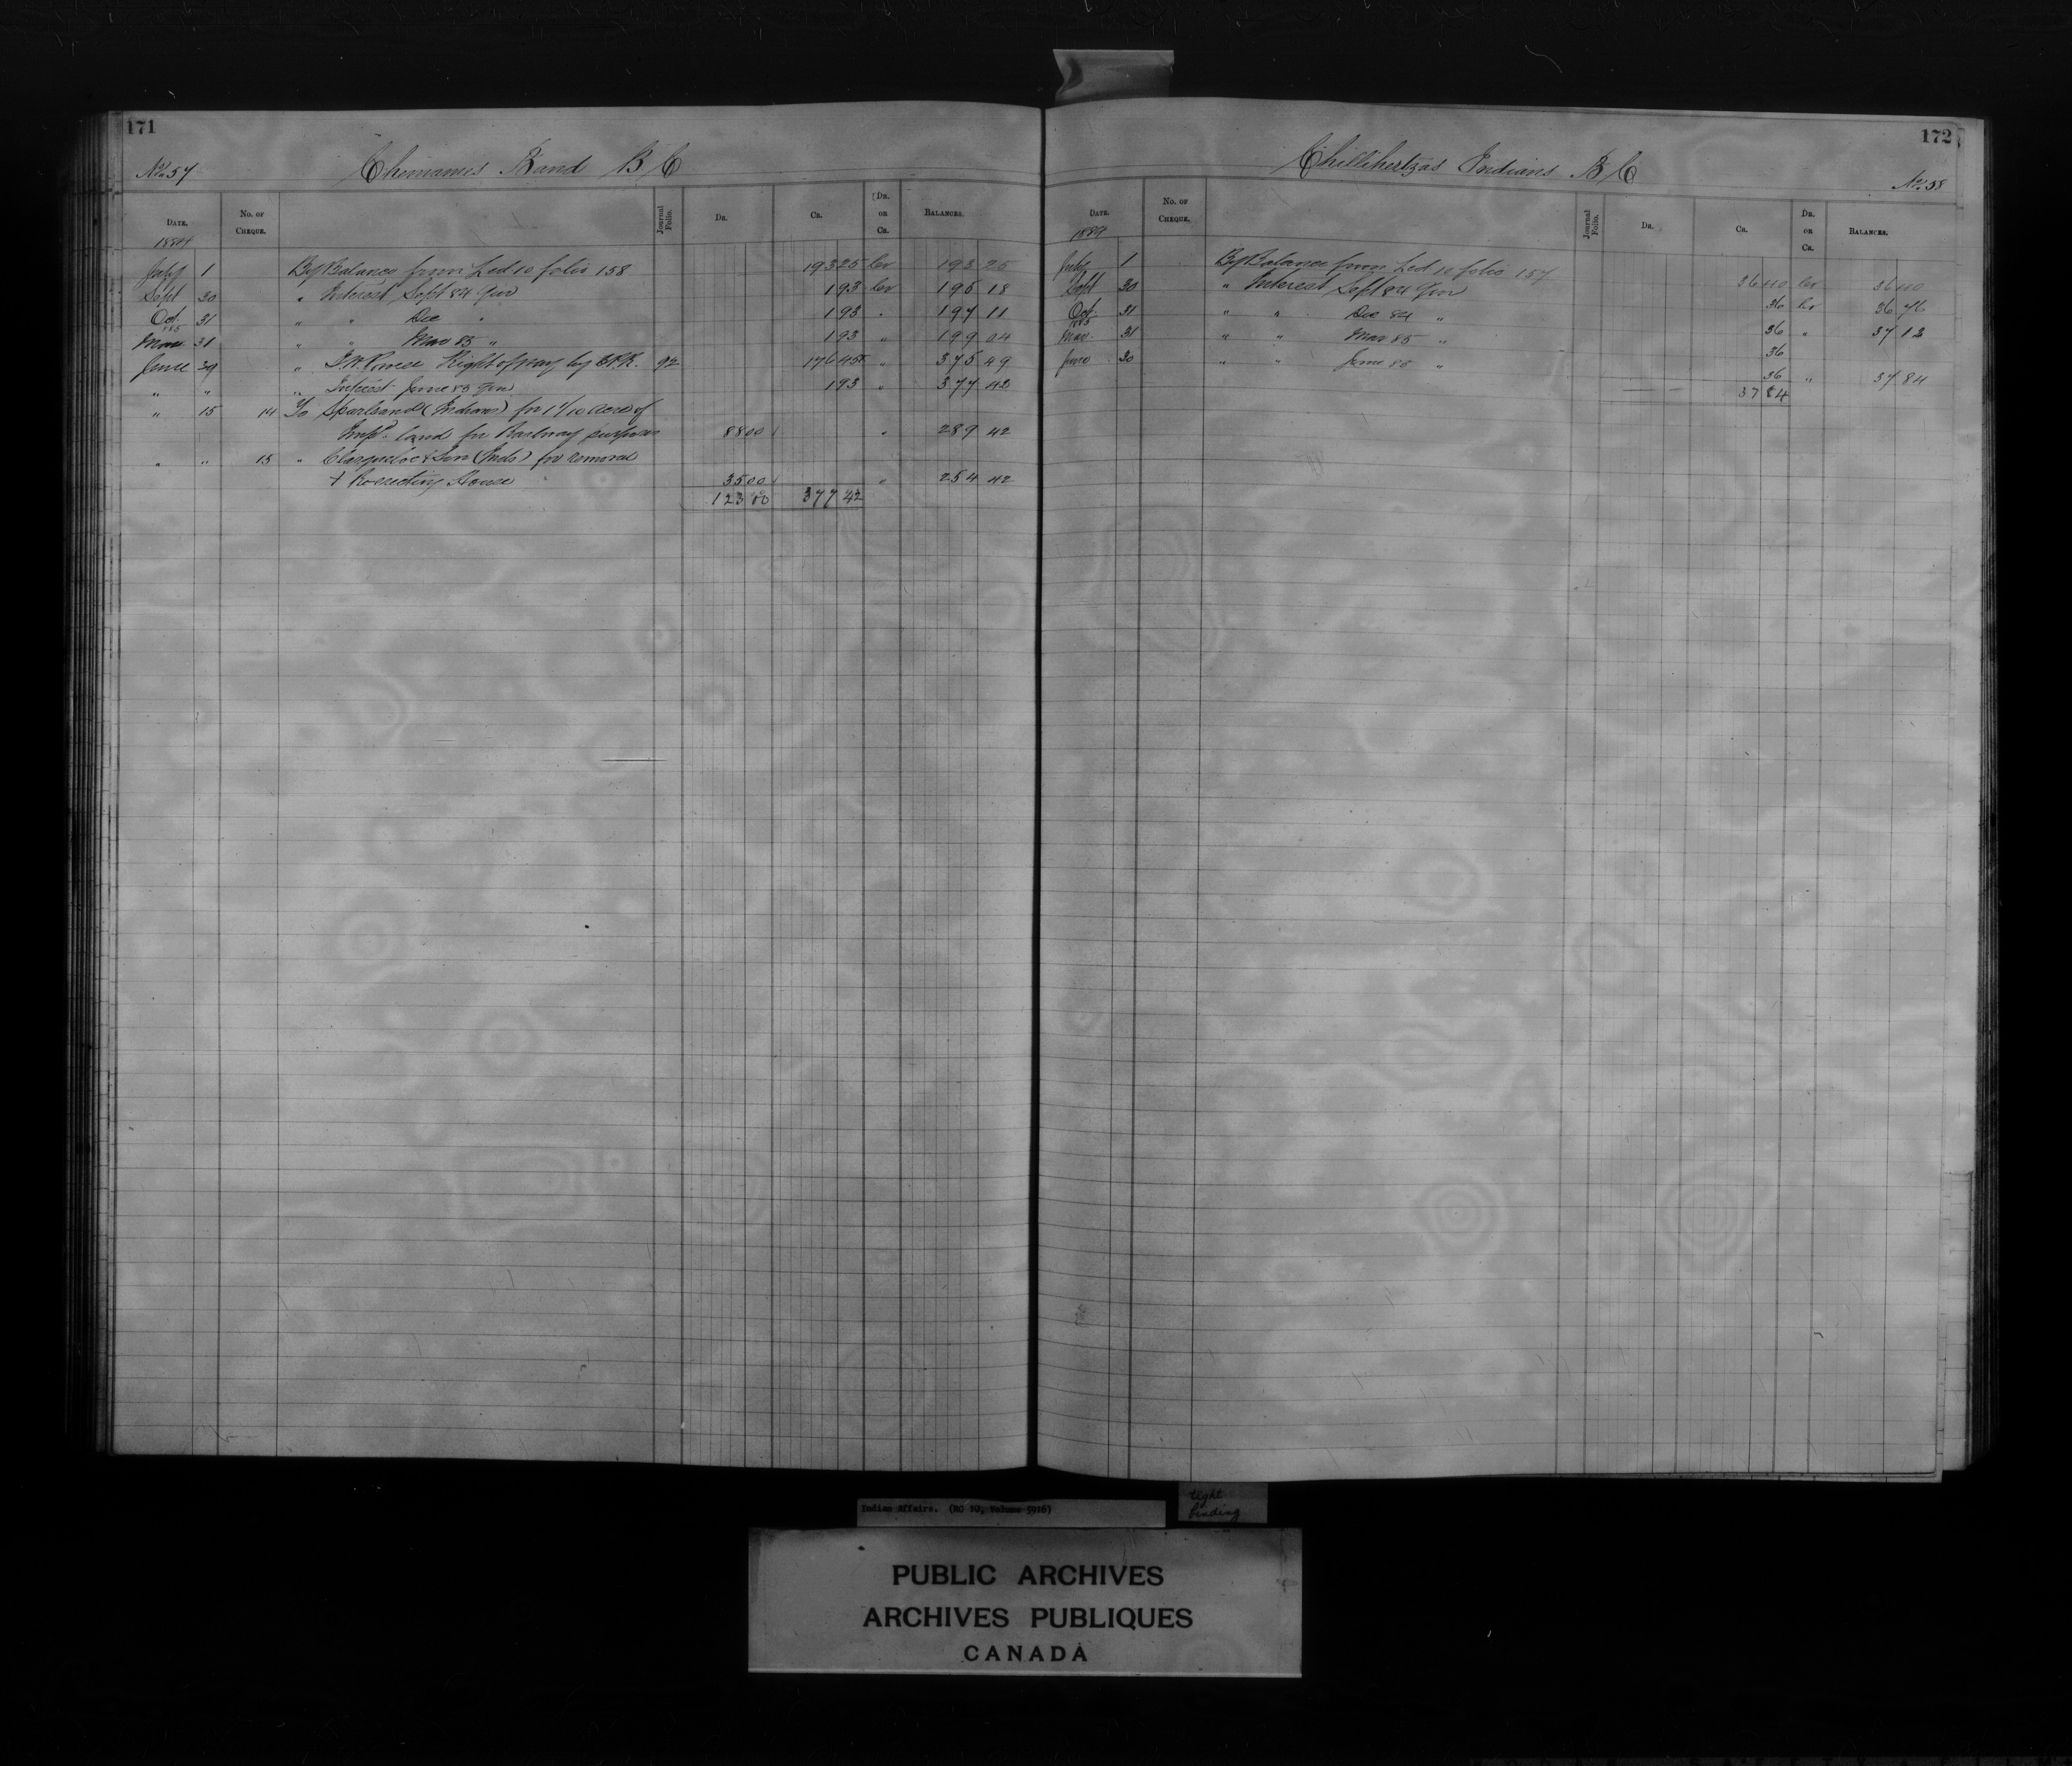 171
No. 57 Chemainus Band B C
Date. No. of Cheque. Journal Folio. Dr. Cr. Dr. or Cr. Balances.
1884
July 1 By Balance from Led 10 folio 158 193 25 Cr 193 25
Sept 30 " Interest Sept 84 Qur 1 93 Cr 195 18
Oct. 31 " " Dec " 1 93 " 197 11
1885
Mar 31 " " Mar 85 " 1 93 " 199 04
June 29 " I.W. Powell Right of way by C.P.R. 92 176 45 " 375 49
" " " Interest June 85 Qur 1 93 " 377 42
" 15 14 To (Indian) for 1 1/10 acre of
Impd. land for Railway purposes 88 00 " 289 42
" " 15 " & Son (Inds) for removal
& Re-erecting House 35 00 " 254 42
123 00 377 42
172
Chillihertzas Indians B C No. 58
Date. No. of Cheque. Journal Folio. Dr. Cr. Dr. or Cr. Balances.
1884
July 1 By Balance from Led 10 folio 157 36 40 Cr 36 40
Sept 30 " Interest Sept 84 Qur 36 Cr 36 76
Oct. 31 " " Dec 84 " 36 " 37 12
1885
Mar. 31 " " Mar 85 " 36
June 30 " " June 85 " 36 " 37 84
37 84
Indian Affairs. (RG 10, Volume 5916)
tight
binding
PUBLIC ARCHIVES
ARCHIVES PUBLIQUES
CANADA